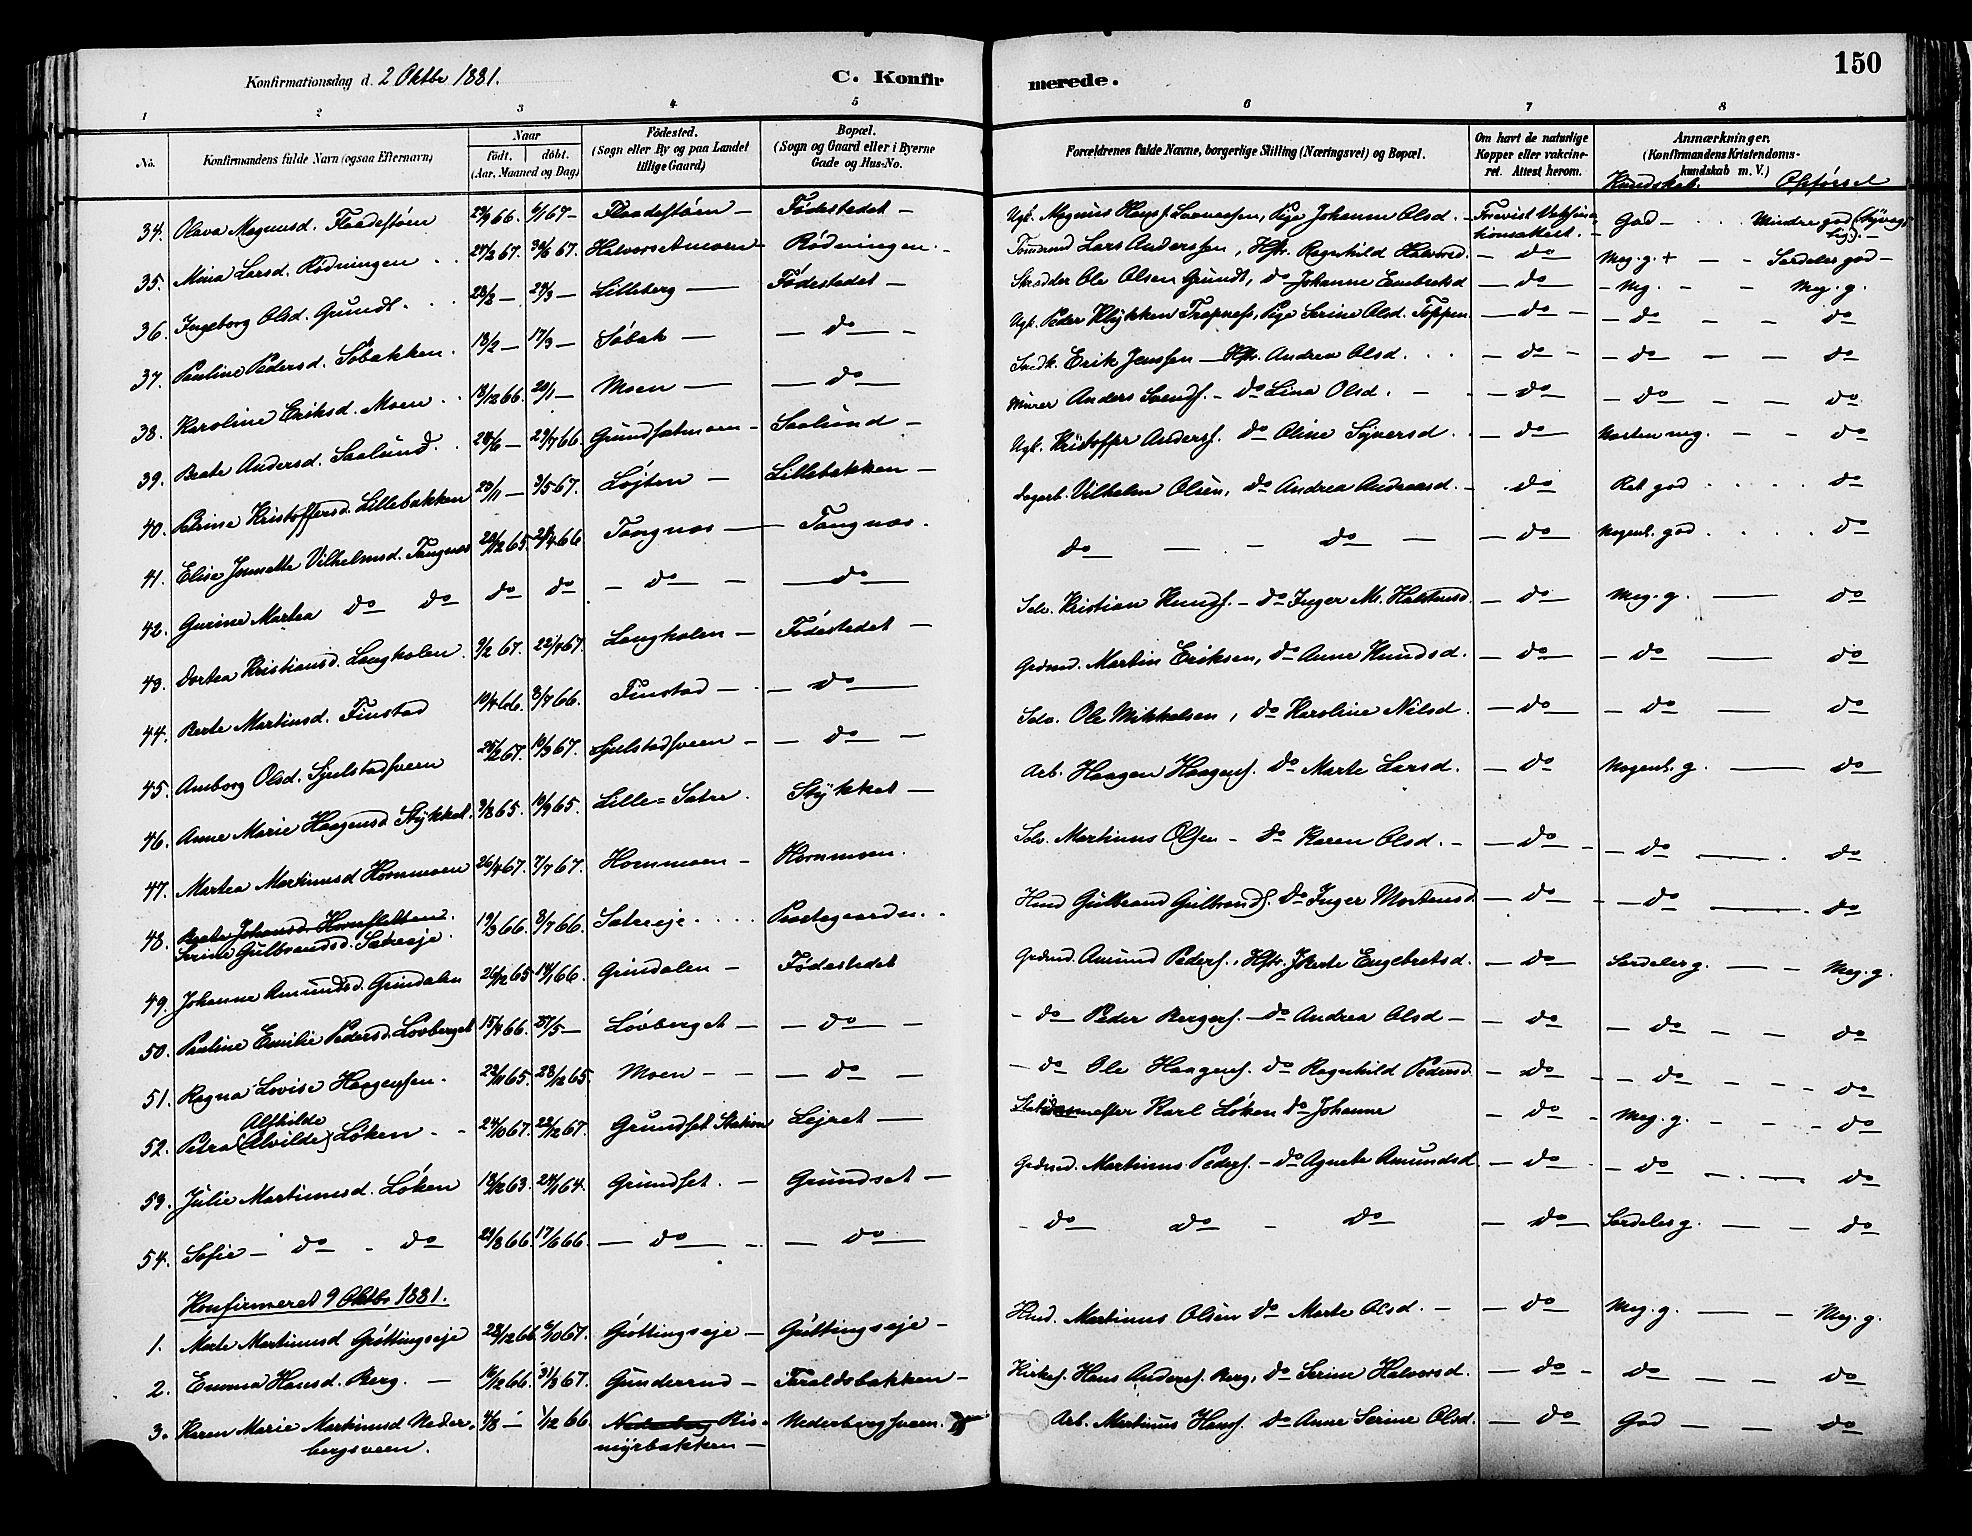 Konfirmationsdag d. 2 Oktbr 1881. C. Konfir merede. 150
1 2 3 4 5 6 7 8
No. Konfirmandens fulde Navn (ogsaa Efternavn) Naar født, døbt. (Aar, Maaned og Dag) Fødested. (Sogn eller By og paa Landet tillige Gaard) Bopæl. (Sogn og Gaard eller i Byerne Gade og Hus-No. Forældrenes fulde Navne, borgerlige Stilling (Næringsvei) og Bopæl. Om havt de naturlige Kopper eller vakcineret. Attest herom. Anmærkninger. (Konfirmandens Kristendomskundskab m. V.) Kundskab. Opførsel
34. Olava Magnusd. Flaadestøen 6/1 67 – Flaadestøen – Fødestedet – Ugk. Magnus Pige Johanne Olsd. – God – Mindre god
35. Mina Larsd. Rødningen 24/2 67. 30/6 67. Rødningen. – Tømmermd Lars Anderssen, Hstr. Ragnhild Halvorsd. – do – Meg. g. + – – Særdeles god –
36. Ingeborg Olsd. Grundt. – Lilleberg – Fødestedet – Skrædder Ole Olsen Grundt, do Johanne Embretsd – do – Meg. – – Meg. g.
37. Pauline Pedersd. Søbakken. 18/2 – 17/3 – Søbak – – do – Ugk. Peder Pige Serine Olsd. Toppen – do – – do – – do
38. Karoline Eriksd. Moen 18/12 66. 20/1 – Moen – – do – Erik Jenssen – Hstr. Andrea Olsd. – do – – do – – do
39. Beate Andersd. Saalund. 28/6 – 29/7 66. Grundsætmoen – Saalund – Murer Anders Svends. – do Lina Olsd. – do – – do – – do
40. Petrine Kristoffersd. Lillebakken 23/11 – 3/5 67. Løjten – Lillebakken – Ugk. Kristoffer Anders. do Oline Syversd. – do – Næsten meg. – – do
41. Elise Jeanette Vilhelmsd. Tangnæs 65. 66 Tangnæs – Tangnæs. Dagarb. Vilhelm Olsen, do Andrea Andreasd. – do Ret god do
42. Gurine Martea do do do do – do – – do – do – – do – – do – Nogenl. god do
43. Dortea Kristiansd. Langholen 9/2 67. 22/4 67. Langholen – Fødestedet – Selv. Kristian Knuds. – do Inger M. Halstensd. – do – Meg. g. – do
44. Berte Martinsd. Finstad 10/4 66. 8/7 66. Finstad – – do – Grdmd. Martin Eriksen, do Anne Knudsd. – do – – do – do
45. Amborg Olsd. Sjulstadsveen 24/2 67. 10/3 67. Sjulstadsveen – – do – Selv. Ole Mikkelsen, do Karoline Nilsd. – do – – do – do
46. Anne Marie Haagensd Stykket. 3/8 65. 10/9 65. Lille=Sætre. Stykket – Arb. Haagen Haagens. do Marte Larsd. – do Nogenl. g. – do
47. Martea Martinusd Hornmoen 26/4 67. 7/7 67. Hornmoen – Hornmoen. Selv. Martinus Olsen – do Karen Olsd. – – do – – do – do
48. Beate Johansd. Hornsletten. Serine Gulbrandsd. Sætreeje. 19/3 66. 8/7 66. Sætreeje. Præstegaarden. Husmd Gulbrand Gulbrands. do Inger Mortensd. – do – – do – do
49. Johanne Amundsd. Grindalen 26/12 65 14/1 66. Grindalen – Fødestedet Grdmd. Amund Peders., Hstr. Kjerte Engebretsd. – do – Særdeles g. – – Meg. g.
50. Pauline Emilie Pedersd. Løvberget 15/4 66. 27/5 – Løvberget – – do – – do – Peder Bergers. – do Andrea Olsd – – do – – do – – do
51. Ragna Lovise Haagensen. 22/11 65. 28/12 65. Moen – – – do – – do – Ole Haagens. do Ragnhild Pedersd. – do – – do – – do
52. Petra Alfhilde (Alvilde) Løken – 24/10 67. 22/12 67. Grundset Station Lejret – Stationsmester Karl Løken do Johanne – do – Meg. g. – – do
53. Julie Martinusd. Løken 18/12 63. 24/1 64. Grundset. – Grundset – Grdmd. Martinus Peders. – do Agnete Amundsd. – do – – do – do
54. Sofie – do – do 29/3 66. 17/6 66. – do – – do – – do do – do – do – Særdeles g. – – do
Konfirmeret 9 Oktbr 1881.
1. Marte Martinusd Grøttingseje 28/12 66. 6/10 67. Grøttingseje – Grøttingseje – Husmd. Martinus Olsen do Marte Olsd. – – do – Meg. g. – – Meg. g.
2. Emma Hansd. Berg. – 16/12 66. 31/3 67. Gunderud – Taraldsbakken – Kirkes. Hans Anders. Berg, do Serine Halvorsd. – do – do – – do
3. Karen Marie Martinusd Nederbergsveen. 4/8 – 1/12 66. Nederberg Rismyrbakken – Nederbergsveen. Arb. Martinus Hans. do Anne Serine Olsd. – do – God – – do